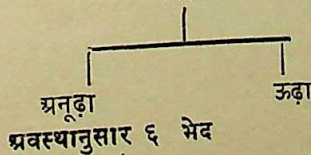 अनूढ़ा ऊढ़ा
अवस्थानुसार ६ भेद